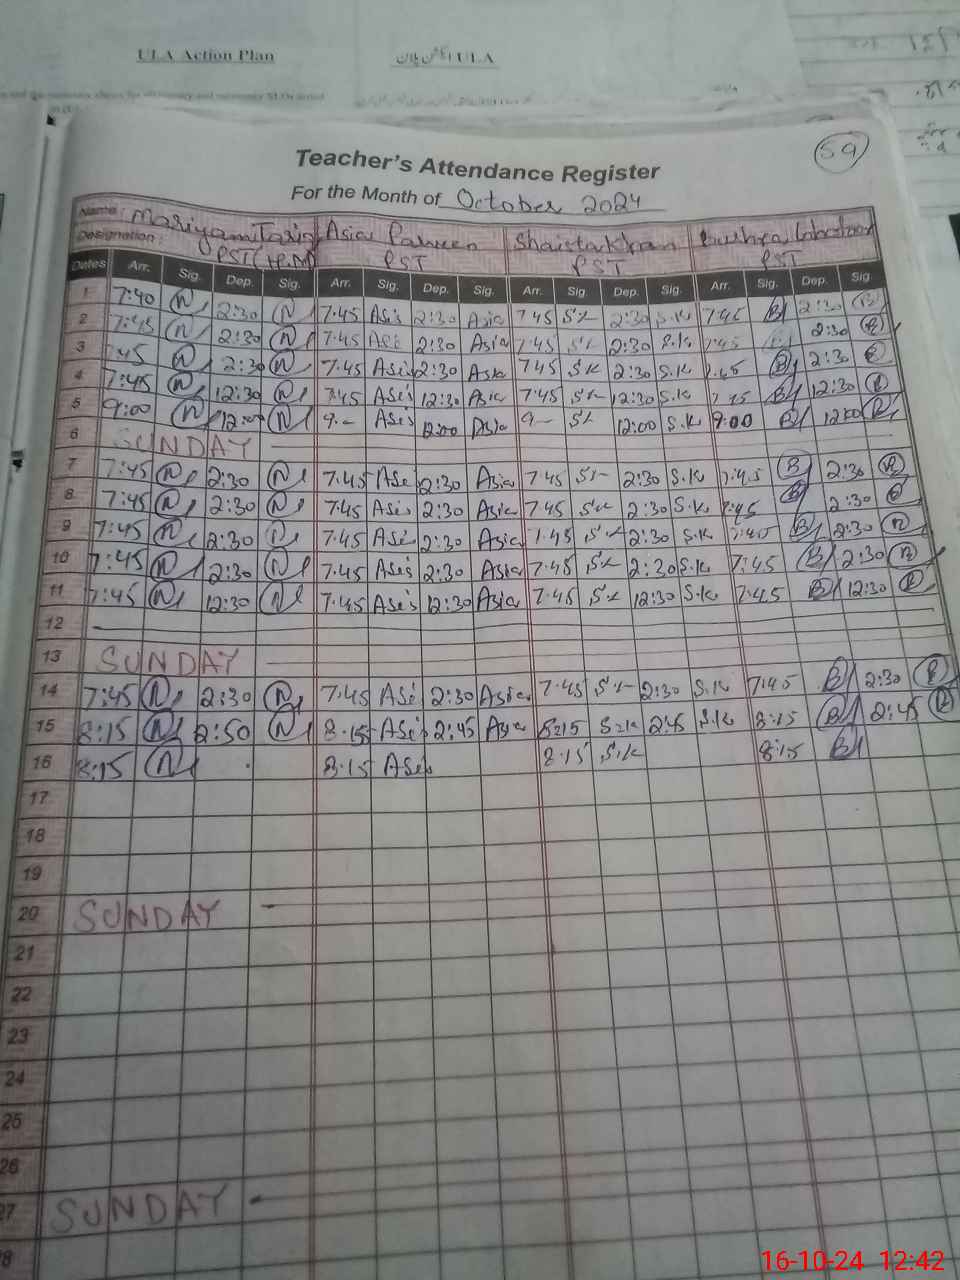 ULA Action Plan
ULA
59
Teacher's Attendance Register
For the Month of October 2024
Name: Mariyam Tariq Asia Parveen Shaista Khan Bushra
Designation: PST (H.M) PST PST PST
Dates Arr. Sig. Dep. Sig. Arr. Sig. Dep. Sig. Arr. Sig. Dep. Sig. Arr. Sig. Dep. Sig.
1 7:40 N 2:30 N 7.45 2:30 Asia 7 45 S.K 2:30 S.K 7:45 B 2:30 B
2 7:45 N 2:30 N 7.45 2:30 Asia 7:45 S.K 2:30 S.K 7:45 2:30 B
3 :45 N 2:30 N 7.45 2:30 Asia 7 45 S.K 2:30 S.K .45 B 2:30 B
4 7:45 N 12:30 N 7.45 12:30 Asia 7.45 S.K 12:30 S.K B 12:30 B
5 9:00 N 12:00 N 9.- 12:00 Asia 9 - S.K 12:00 S.K 9:00 B 12:00 B
6 SUNDAY
7 7:45 N 2:30 N 7.45 2:30 Asia 7.45 S.K 2:30 S.K 7:45 B 2:30 B
8 7:45 N 2:30 N 7.45 2:30 Asia 7.45 S.K 2:30 S.K 7:45 B 2:30 B
9 7:45 N 2:30 N 7.45 2:30 Asia 7.45 S.K 2:30 S.K 7:45 B 2:30 B
10 7:45 N 2:30 N 7.45 2:30 Asia 7.45 S.K 2:30 S.K 7:45 B 2:30 B
11 7:45 N 12:30 N 7.45 12:30 Asia 7.45 S.K 12:30 S.K 7:45 B 12:30 B
12
13 SUNDAY
14 7:45 N 2:30 N 7.45 2:30 Asia 7.45 S.K 2:30 S.K 7:45 B 2:30 B
15 8:15 N 2:50 N 8.15 2:45 Asia 8:15 S.K 2:45 S.K 8:15 B 2:45 B
16 8:15 N 8.15 8.15 S.K 8:15 B
17
18
19
20 SUNDAY
21
22
23
24
25
26
27 SUNDAY
28
16-10-24 12:42